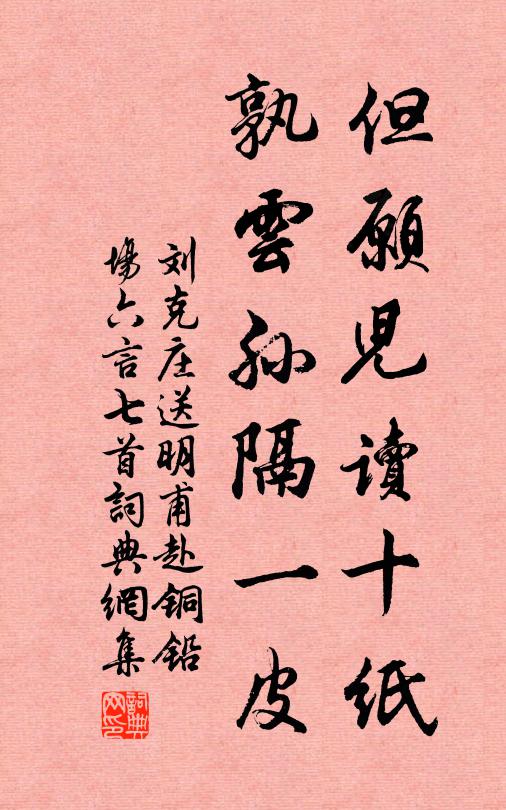 但願児讀十紙
孰雲孙隔一皮
刘克庄送明甫赴铜铅
場六言七首詞典網集
詞典网印